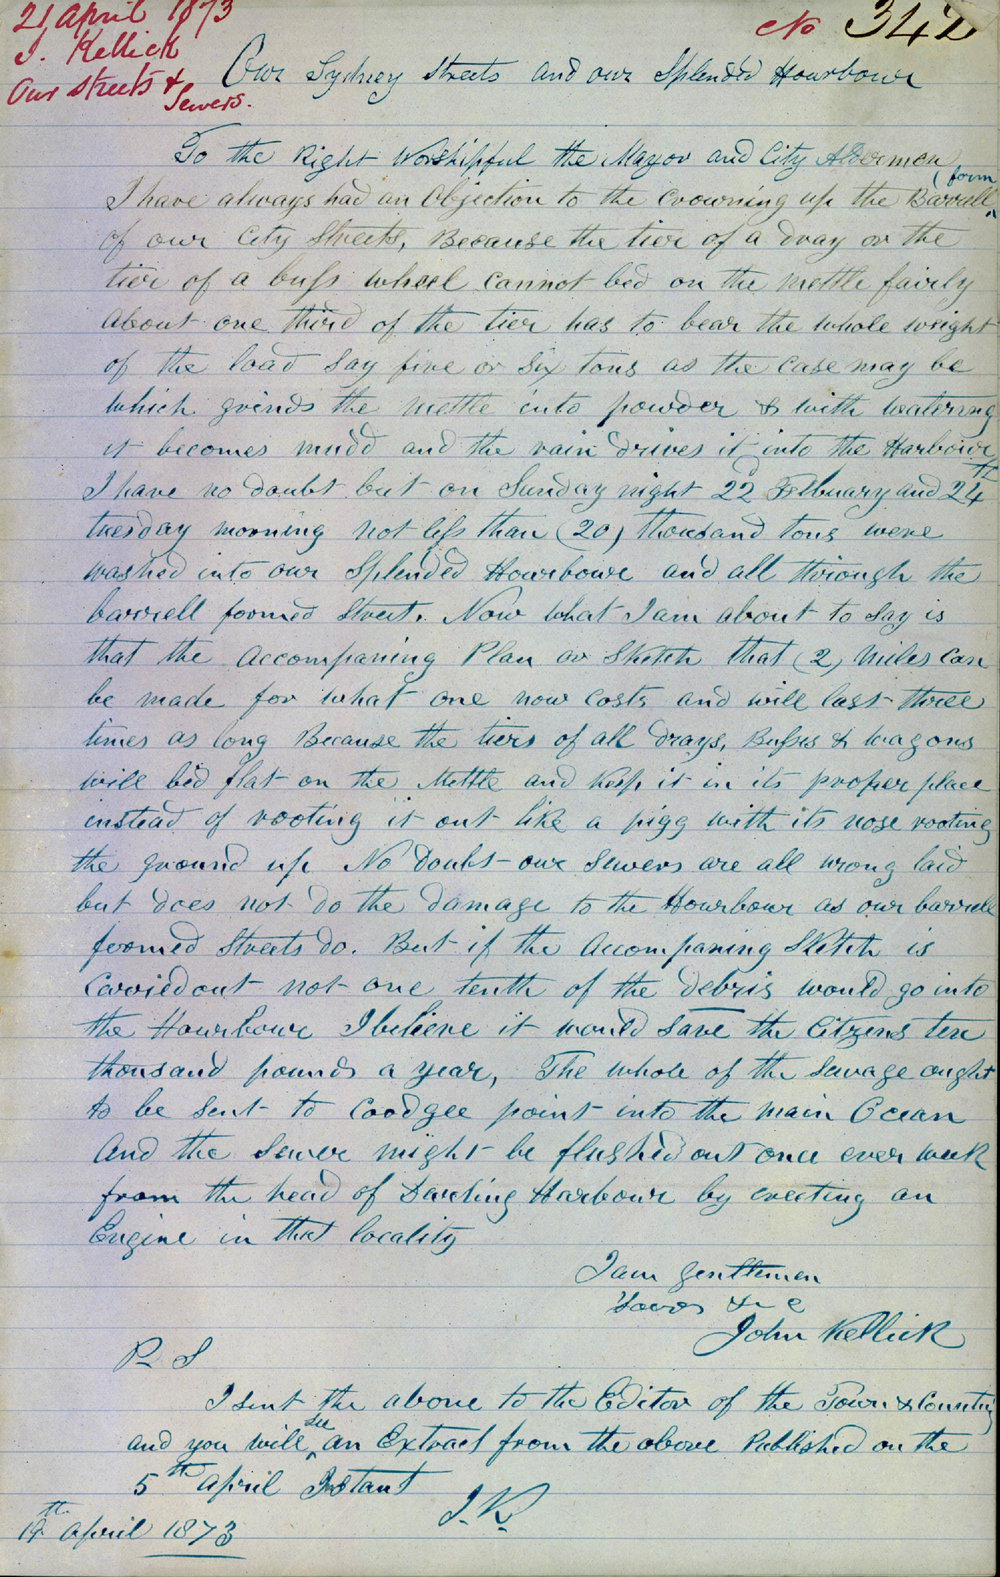 21 April 1873
J. Kellick
Our Streets &
Sewers.
No 342
Our Sydney Streets and our Splended Hourbour
To the Right Worshipful the Mayor and City Aldermen
(form
I have always had an Objection to the Crowning up the Barrell
of our City Streets, Because the tier of a dray or the
tier of a buss wheel cannot bed on the mettle fairly
about one third of the tier has to bear the whole weight
of the load say five or six tons as the case may be
which grinds the mettle into powder & with watering
it becomes mudd and the rain drives it into the Harbour
I have no doubt but on Sunday night 22d Febuary and 24th
tuesday morning not less than (20) thousand tons were
washed into our Splended Hourbour and all through the
barrell formed Street. Now what I am about to say is
that the accompaning Plan or Sketch that (2) Miles can
be made for what one now costs and will last three
times as long Because the tiers of all drays, Busses & wagons
will bed flat on the Mettle and keep it in its proper place
instead of rooting it out like a pigg with its nose rooting
the ground up No Doubt our Sewers are all wrong laid
but does not do the damage to the Hourbour as our barrell
formed Streets do. But if the accompaning Sketch is
carried out not one tenth of the debris would go into
the Hourbour I believe it would save the Citzens ten
thousand pounds a year, The whole of the sewage ought
to be sent to Coodgee point into the main Ocean
and the sewer might be flushed out once ever week
from the head of Darling Harbour by erecting an
Engine in that locality
I am Gentlemen
Yours &c
John Kellick
P S
I sent the above to the Editor of the Town & Country
and you will see an Extract from the above Published on the
5th April Instant
J.K.
19th April 1873